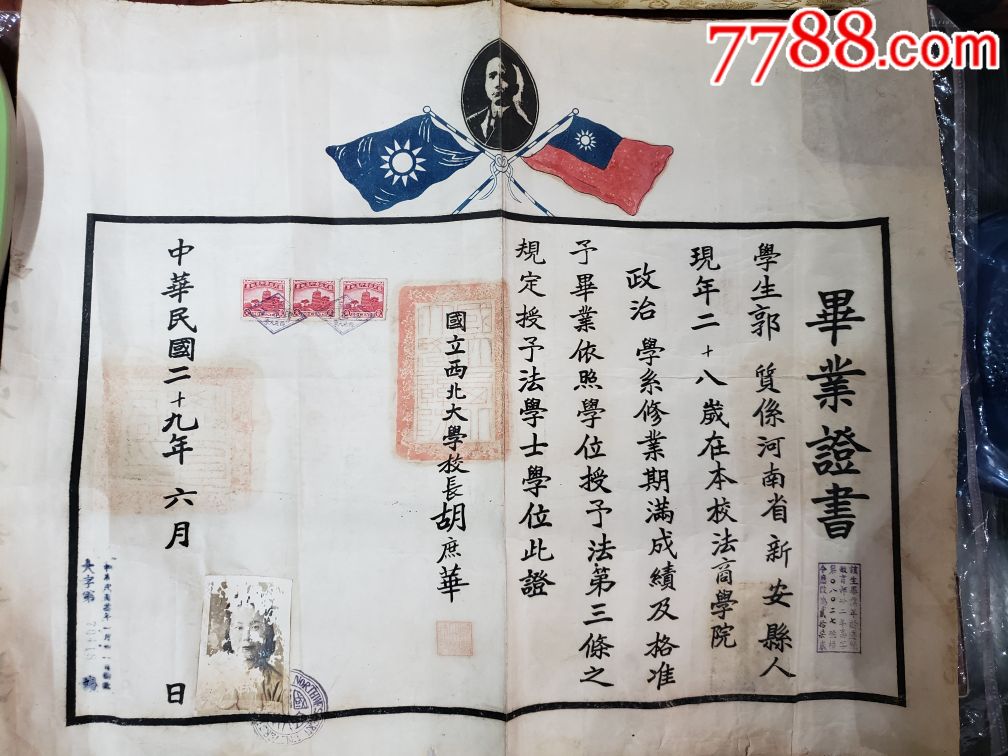 7788.com
畢業證書
學生郭 質係河南省新安縣人
現年二十八歲在本校法商學院
政治 學系修業期滿成績及格准
予畢業依照學位授予法第三條之
規定授予法學士學位此證
國立西北大學校長胡庶華
中華民國二十九年 六月 日
大字第 號
NORTHWESTERN